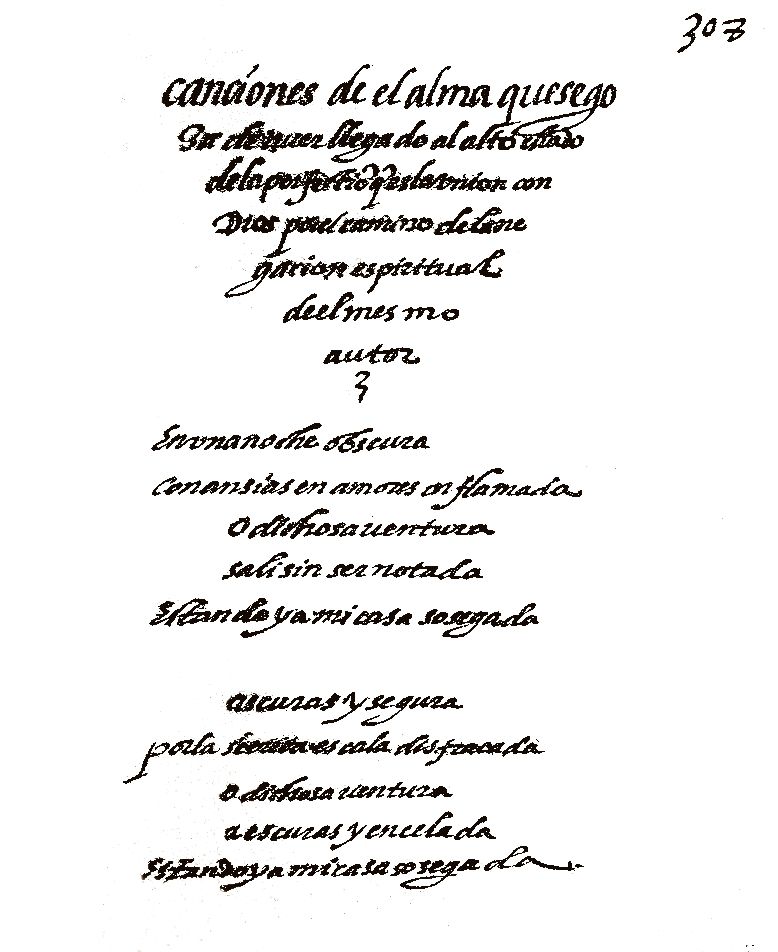 307
canciones de el alma que sego
za de auer llegado al alto estado
de la perfectiõ q̃ es la union con
Dios por el camino de la ne
gacion espiritual
de el mesmo
autor
En vna noche obscura
con ansias en amores inflamada
o dichosa uentura
sali sin ser notada
Estando ya mi casa sosegada
ascuras y segura
por la secreta escala disfracada
o dichosa uentura
a escuras y encelada
Estando ya mi casa sosegada